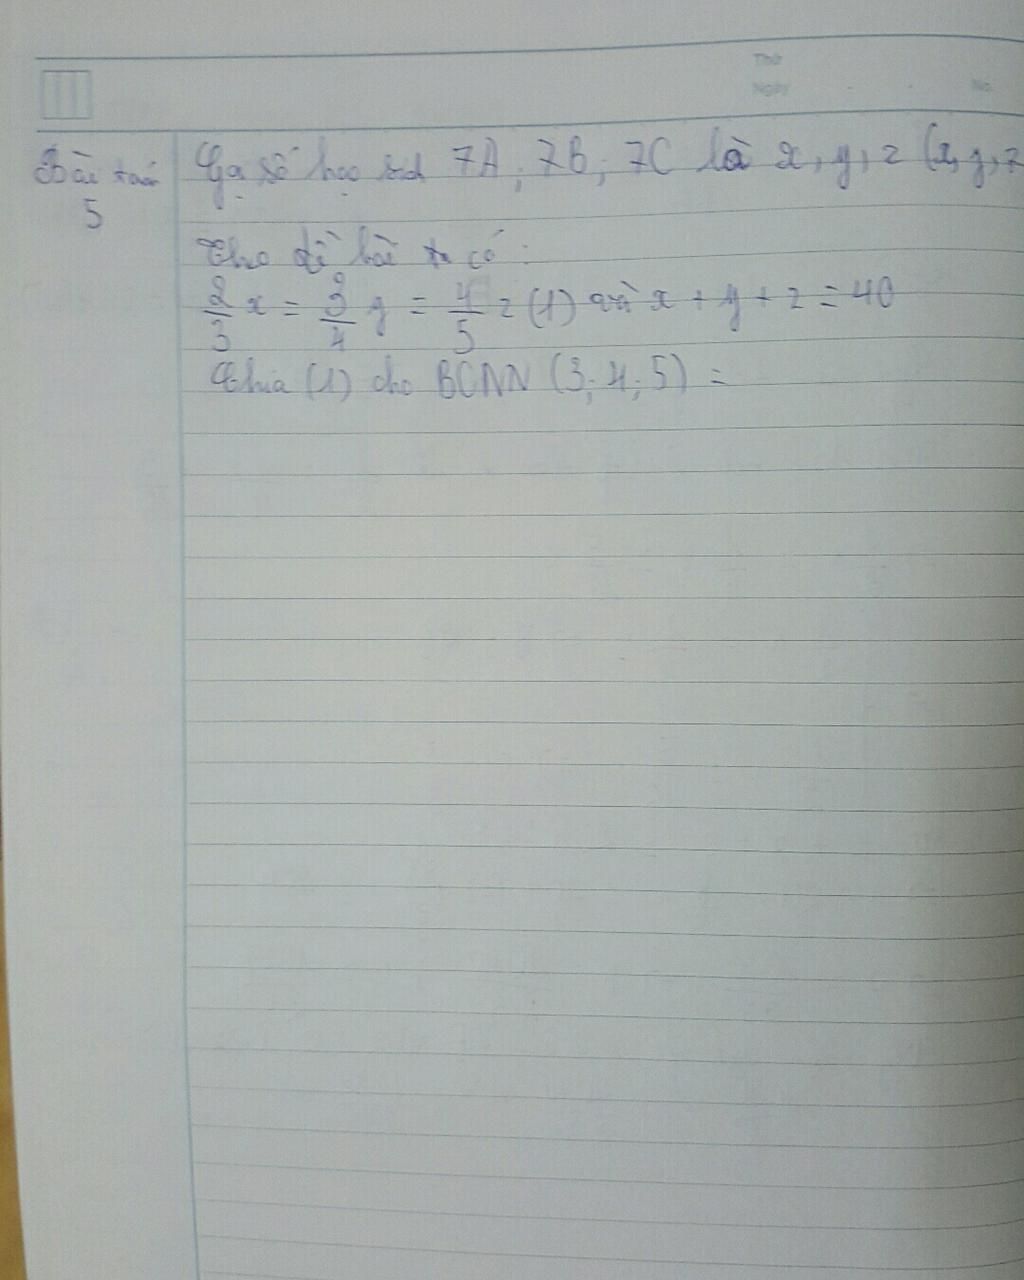 Thứ
Ngày
No.
Bài toán
5
Gọi số học sinh 7A, 7B, 7C là x, y, z (x, y, z
Theo đề bài ta có:
2/3 x = 3/4 y = 4/5 z (1) và x + y + z = 40
Chia (1) cho BCNN (3, 4, 5) =